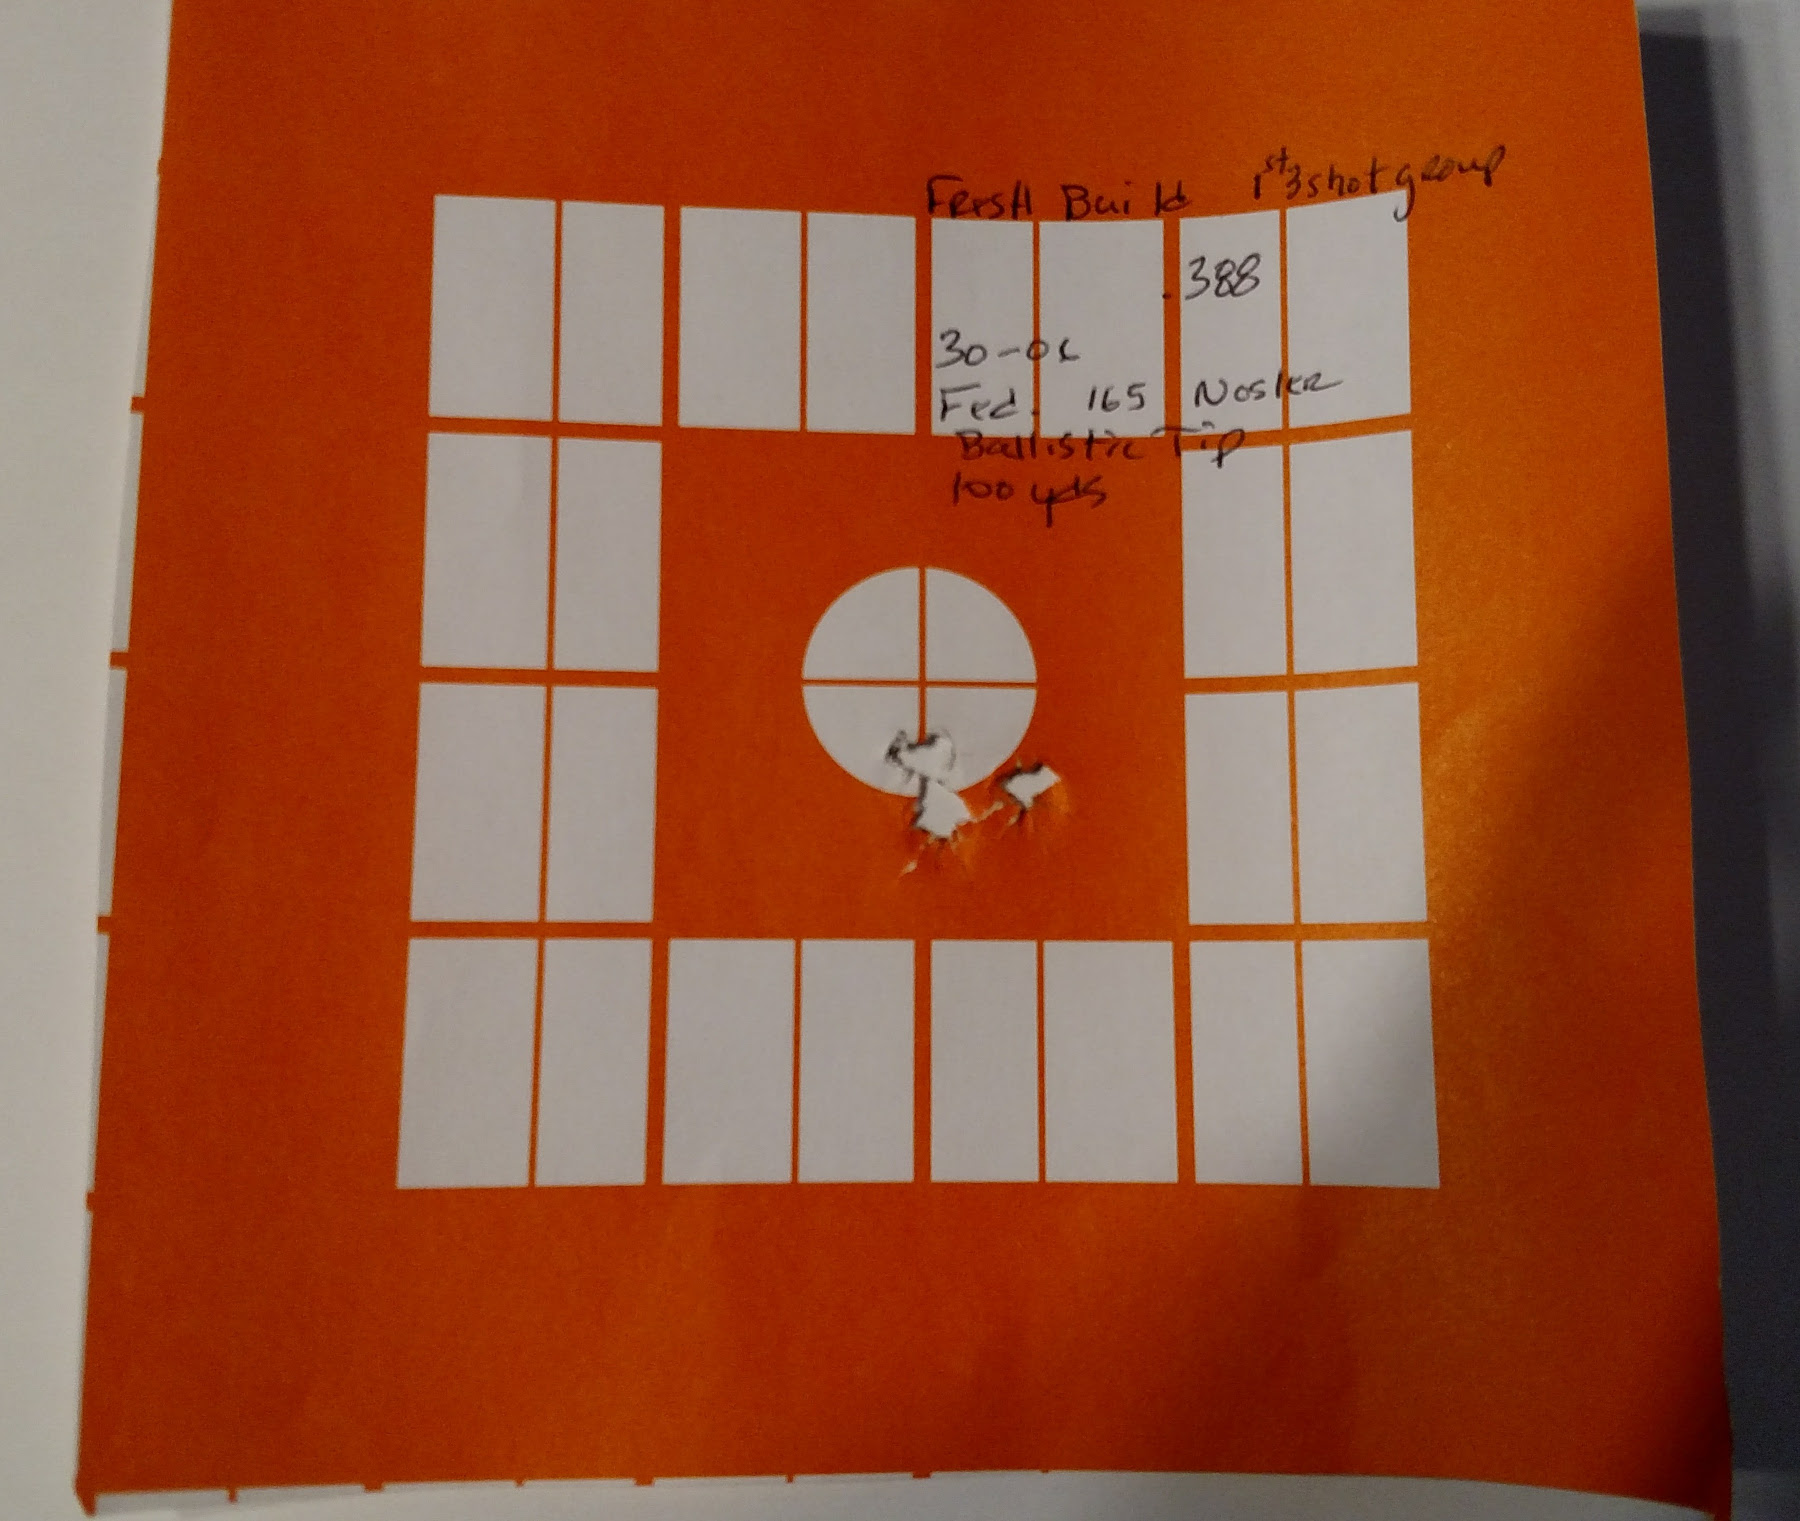 Fresh Build 1st 3 shot group
.388
30-06
Fed. 165 Nosler
Ballistic Tip
100 yds